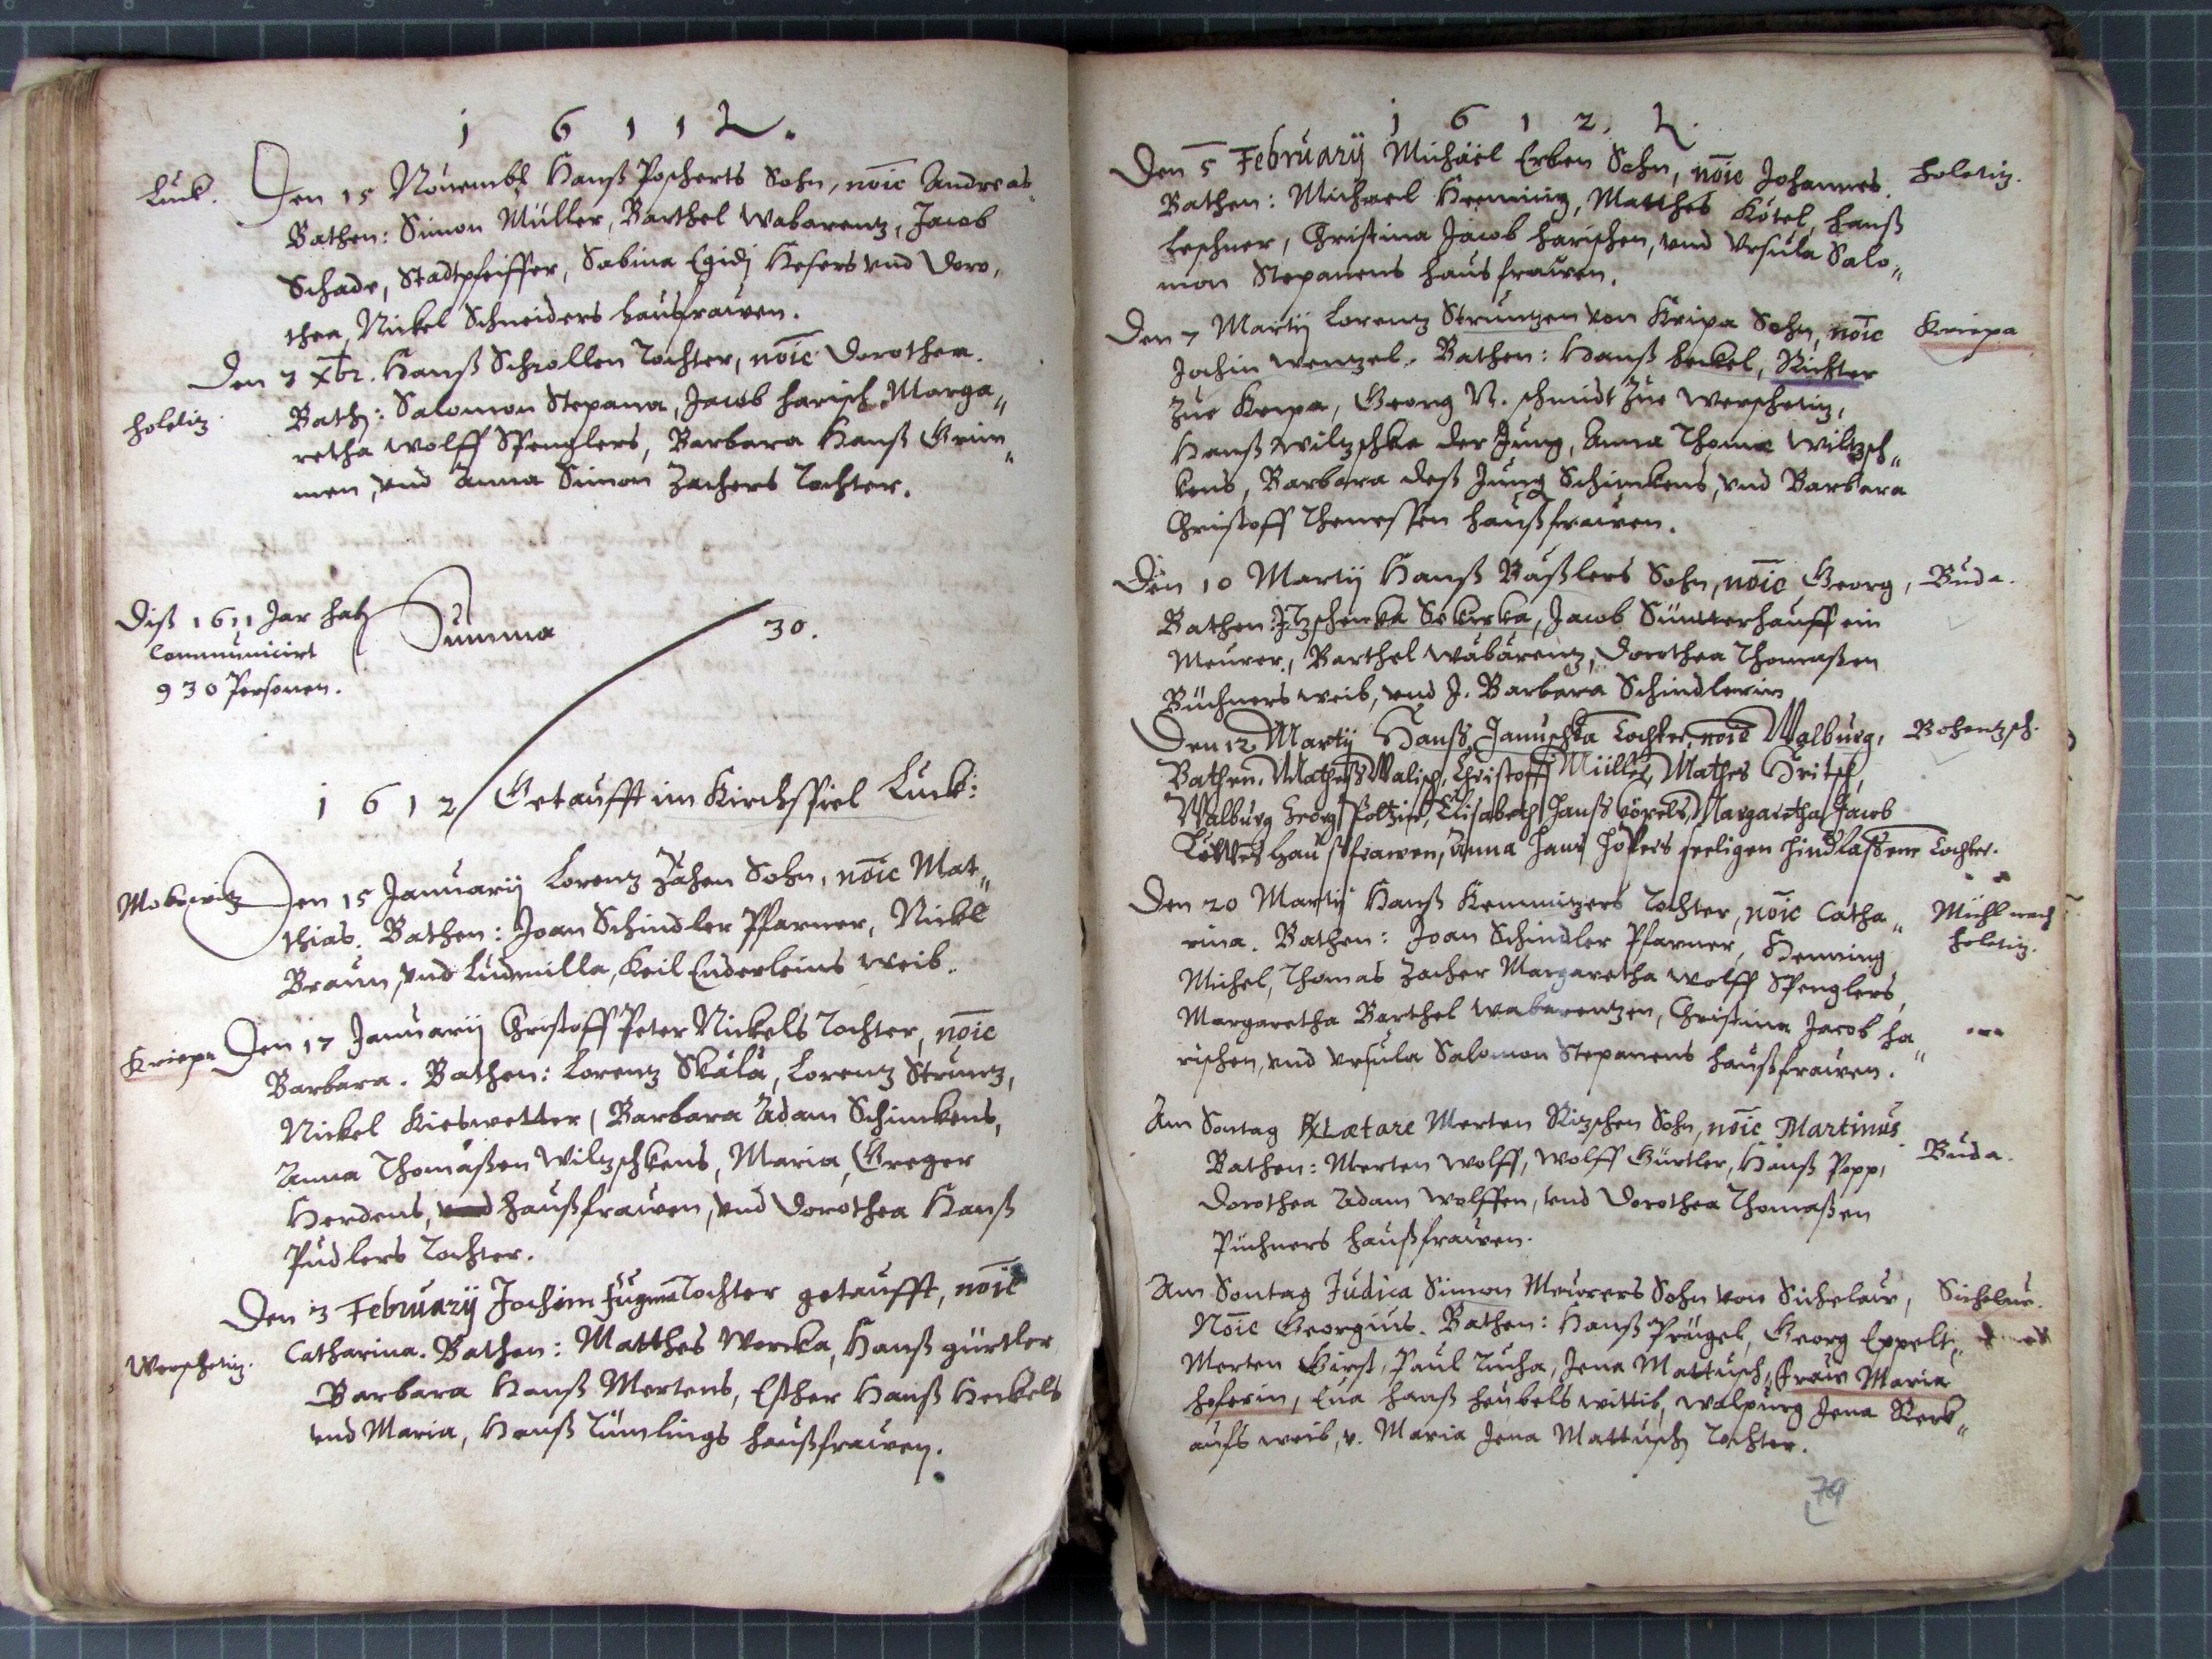 1 6 1 1
Luck. Den 15 Nouembr Hanß Poscherts Sohn, nōie Andreas
Bathen: Simon Müller, Barthel Wabarentz, Jacob
Schade, Stadtpfeiffer, Sabina Egidj Hesers vnd Doro,
thea Nickel Schneiders hausfrawen.
Den 7 Xbr. Hanß Schrollen Tochter, nōie Dorothea.
holetitz Bath: Salomon Stepana, Jacob Harisch, Marga„
retha Wolff Spenglers, Barbara Hanß Grim„
men, vnd Anna Simon Zachers Tochter.
Diß 1611 Jar hat
Communicirt
930 Personen.
Summa 30.
1 6 1 2 Getaufft im Kirchspiel Luck:
Den 15 Januarij Lorentz Zähen Sohn, nōie Mat„
thias. Bathen: Joan Schindler Pfarrner, Nickl
Braun, vnd Ludmilla, Keil Enderleins weib.
Kriepa Den 17 Januarij Christoff Peter Nickels Tochter, nōie
Barbara. Bathen: Lorentz Skala, Lorentz Struntz,
Nickel Kieswetter, Barbara Adam Schimkens,
Anna Thomaßen Wiltzschkens, Maria Greger
Herdens, vnd haußfrawen, vnd Dorothea Hanß
Pudlers Tochter.
Den 3 February Jochim Tochter getaufft, nōie
Werschetitz. Catharina. Bathen: Matthes Worcka, Hanß gürtler
Barbara Hanß Mertens, Esther Hanß Heckels
vnd Maria, Hanß Tümlings haußfrawen.
1 6 1 2.
Den 5 February Michäel Erben Sohn, nōie Johannes. holetitz.
Bathen: Michael Henning, Matthes Kötel, hanß
Leschner, Christina Jacob harischen, vnd Vrsula Salo„
mon Stepanens hausfrawen.
Den 7 Martij Lorentz Struntzen von Kripa Sohn, nōie Kriepa
Jochim Wentzel. Bathen: Hanß Heckel, Richter
Zue Kripa, Georg N. schmidt Zue Werschetitz,
Hanß Wiltzschka der Jung, Anna Thoma Wiltzsch„
kens, Barbara deß Jung Schimkens, vnd Barbara
Christoff haußfrawen.
Den 10 Martij Hanß Bäßlers Sohn, nōie Georg, Buda.
Bathen: Sekerka, Jacob Sünterhauff ein
Meurer, Barthel Wabarentz, Dorothea Thomaßen
Büchners weib, vnd J. Barbara Schindlerin
Den 12 Martij Hanß Januschka Tochter, nōie Walburg, Bohentsch.
Bathen. Matheß Walisch, Christoff Müller, Mathes Fritsch,
Walburg Georg Poltzin, Elisabeth Hanß Margaretha Jacob
haußfrawen, Anna Hans seeligen hindlaßene Tochter.
Den 20 Martij Hanß Kemnitzers Tochter, nōie Catha„ Mühl nach
rina. Bathen: Joan Schindler Pfarrner, Henning holetitz.
Michel, Thomas Zacher Margaretha Wolff Spenglers,
Margaretha Barthel Wabarentzen, Christina Jacob ha„
rischen, vnd Vrsula Salomon Stepanens haußfrawen.
Am Sontag Lætare Merten Ritzschen Sohn, nōie Martinus.
Bathen: Merten Wolff, Wolff Gürtler, Hanß Popp, Buda.
Dorothea Adam Wolffen, vnd Dorothea Thomaßen
Püchners haußfrawen.
Am Sontag Judica Simon Meurers Sohn von Sichelaw, Sichelau.
Nōie Georgius. Bathen: Hanß Prügel, Georg Eppelt,
Merten Girst, Paul Tucha, Jena Mattusch, Fraw Maria
Heserin, Eua Hanß Heubels wittib, Walpurg Jena
aufs weib, v. Maria Jena Mattusch Tochter.
79